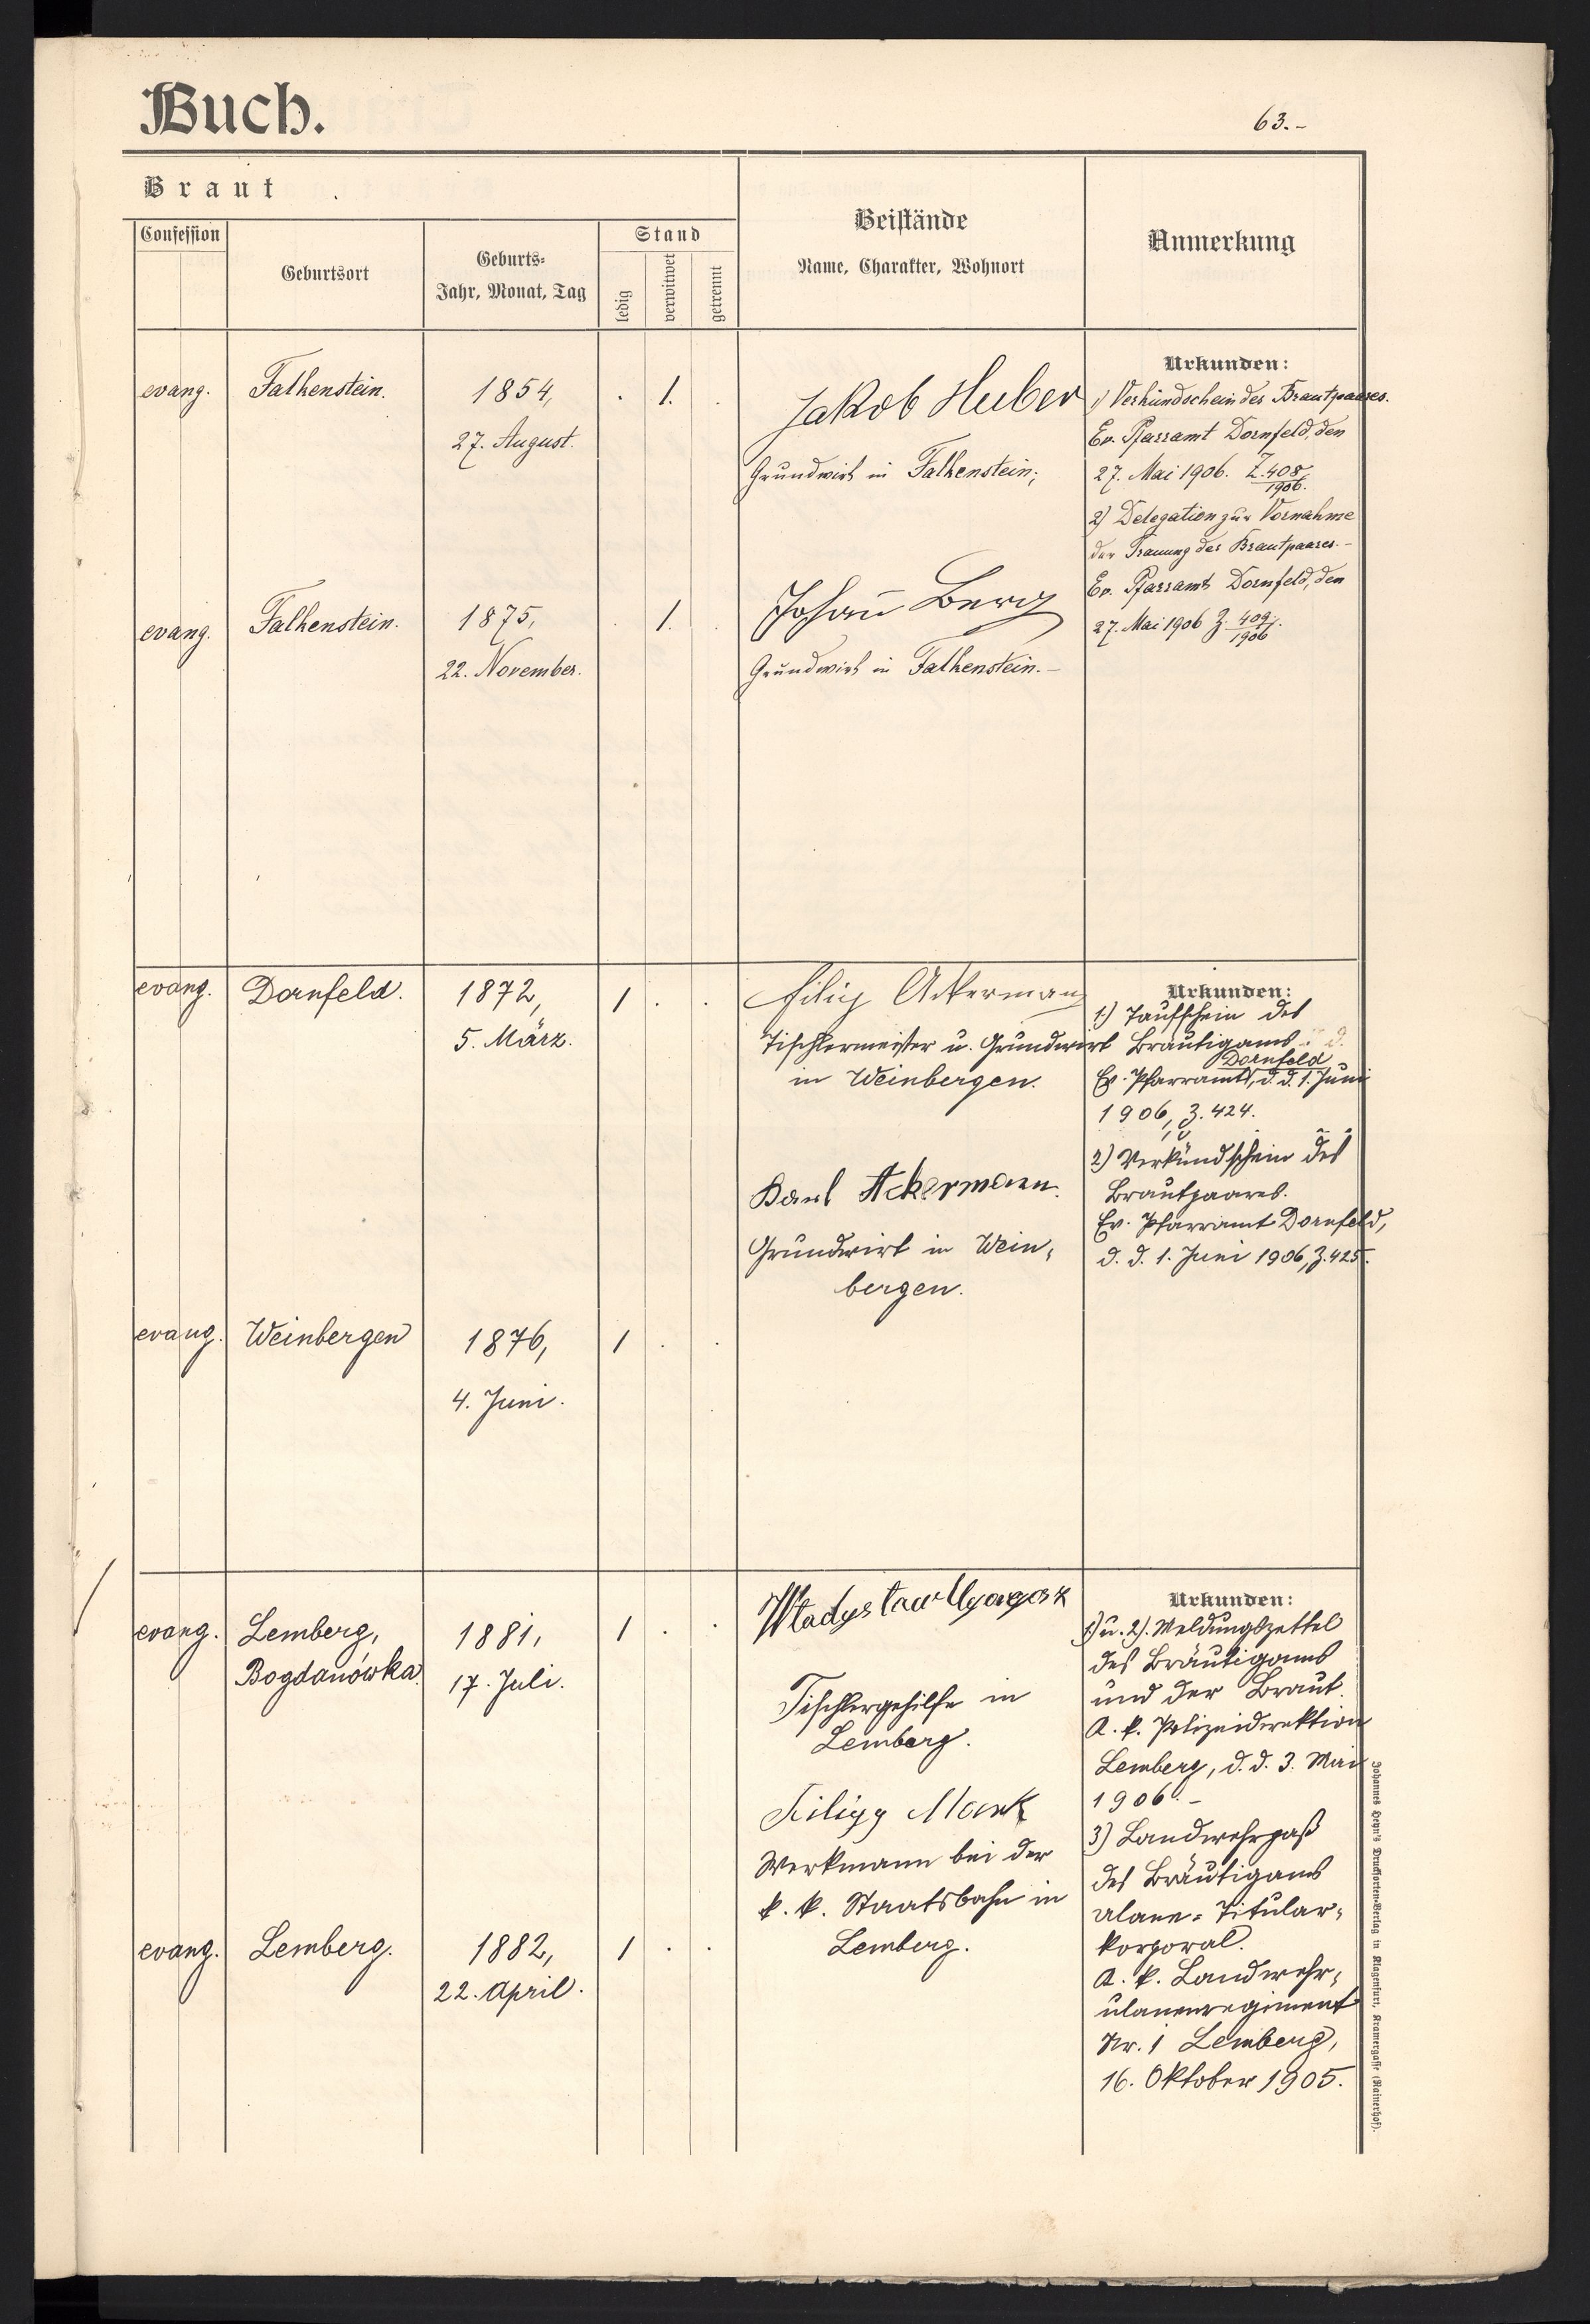 Buch.
63.-
Braut
Confession
Geburtsort
Geburts-
Jahr, Monat, Tag
Stand
ledig
verwitwet
getrennt
Beistände
Name, Charakter, Wohnort
Anmerkung
evang.
Falkenstein.
1854,
27. August.
. 1. .
Jakob Huber
Grundwirt in Falkenstein;
Urkunden:
1) Verkündschein des Brautpaares.
Ev. Pfarramt Dornfeld, den
27. Mai 1906. Z. 408/1906.
2) Delegation zur Vornahme
der Trauung des Brautpaares.-
Ev. Pfarramt Dornfeld, den
27. Mai 1906 Z. 409/1906.
evang.
Falkenstein.
1875,
22. November.
. 1. .
Johann Berg
Grundwirt in Falkenstein.-
evang.
Dornfeld.
1872,
5. März.
1 . .
Filip Ackermann
Tischlermeister u. Grundwirt
in Weinbergen.
Karl Ackermann.
Grundwirt in Wein-
bergen.
Urkunden:
1.) Taufschein des
Bräutigams
Dornfeld
Ev. Pfarramt, d. d. 1. Juni
1906, Z. 424.
2) Verkündschein des
Brautpaares.
Ev. Pfarramt Dornfeld,
d. d. 1. Juni 1906, Z. 425.
evang.
Weinbergen
1876,
4. Juni.
1 . .
evang.
Lemberg,
Bogdanówka.
1881,
17. Juli.
1 . .
Władysław
Tischlergehilfe in
Lemberg.
Filipp Mank
Werkmann bei der
k. k. Staatsbahn in
Lemberg.
Urkunden:
1) u. 2). Meldungszettel
des Bräutigams
und der Braut.
K. k. Polizeidirektion
Lemberg, d. d. 3. Mai
1906.-
3) Landwehrpaß
des Bräutigams
Ulane-Titular-
korporal.
K. k. Landwehr-
ulanenregiment
Nr. 1 Lemberg,
16. Oktober 1905.
evang.
Lemberg.
1882,
22. April.
1 . .
Johannes Heyn's Drucksorten-Verlag in Klagenfurt, Kramergasse (Rainerhof).